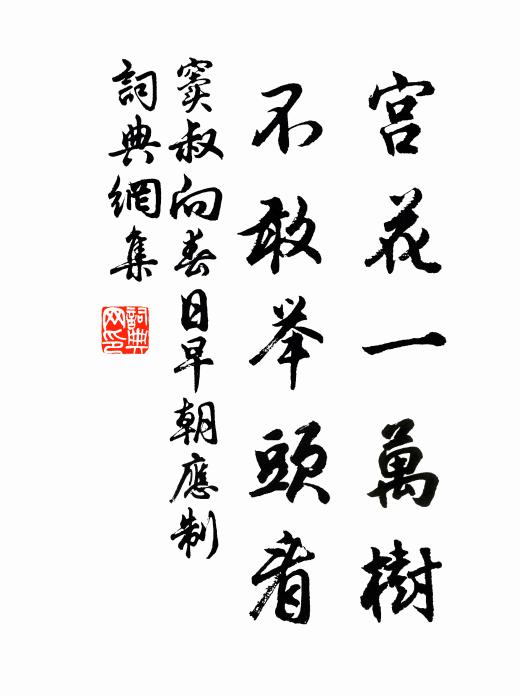 宫花一萬樹
不敢举頭看
窦叔向春日早朝應制
詞典網集
詞典
网印